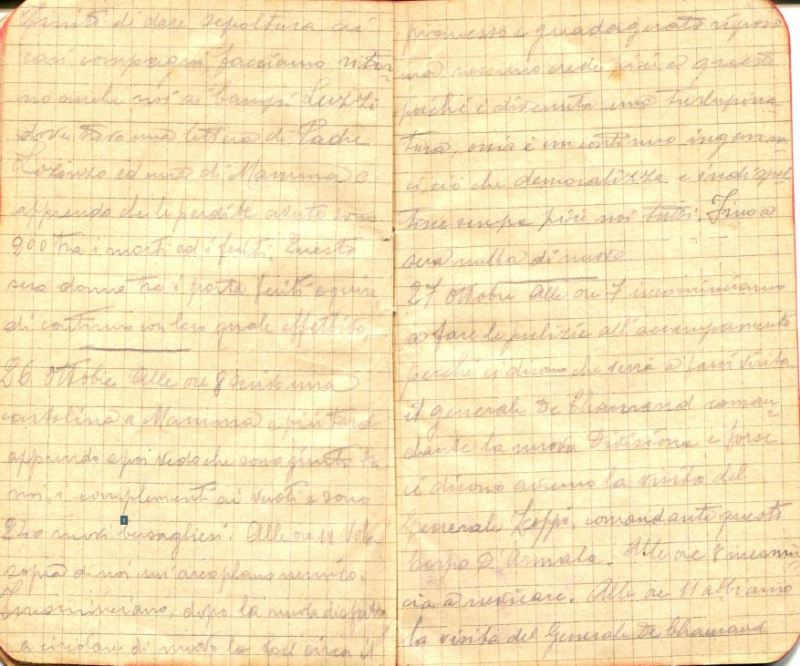 Finito di dare sepoltura ai
cari compagni facciamo ritor-
no anche noi ai Campi Luzzi
dove trovo una lettera di Padre
Lorenzo ed una di Mamma e
apprendo che le perdite avute sono
200 tra i morti ed i feriti. Questa
sera dormo tra i porta feriti e quin-
di continuo con loro quale effettivo.
26 ottobre Alle ore 8 scrivo una
cartolina a Mamma e più tardi
apprendo e poi vedo che sono giunti tra
noi, i complementi ai vuoti e sono
240 nuovi bersaglieri. Alle ore 11 vola
sopra di noi un'areoplano nemico.
Incominciano, dopo la nuova disfatta
a circolare di nuovo le voci circa il
promesso e guadagnato riposo
ma nessuno crede più a questo
poiché è divenuta una turlupina-
tura, ossia è un continuo ingannar-
ci ciò che demoralizza e
sempre più noi tutti. Fino a
sera nulla di nuovo.
27 ottobre Alle ore 7 incominciamo
a fare le pulizie all'accampamento
perché ci dicono che verrà a farci visita
il generale De Chaurand coman-
dante la nuova Divisione e forse
ci dicono avremo la visita del
Generale Zoppi, comandante questo
Corpo D'Armata. Alle ore 8 incomin-
cia a nevicare. Alle ore 11 abbiamo
la visita del Generale De Chaurand